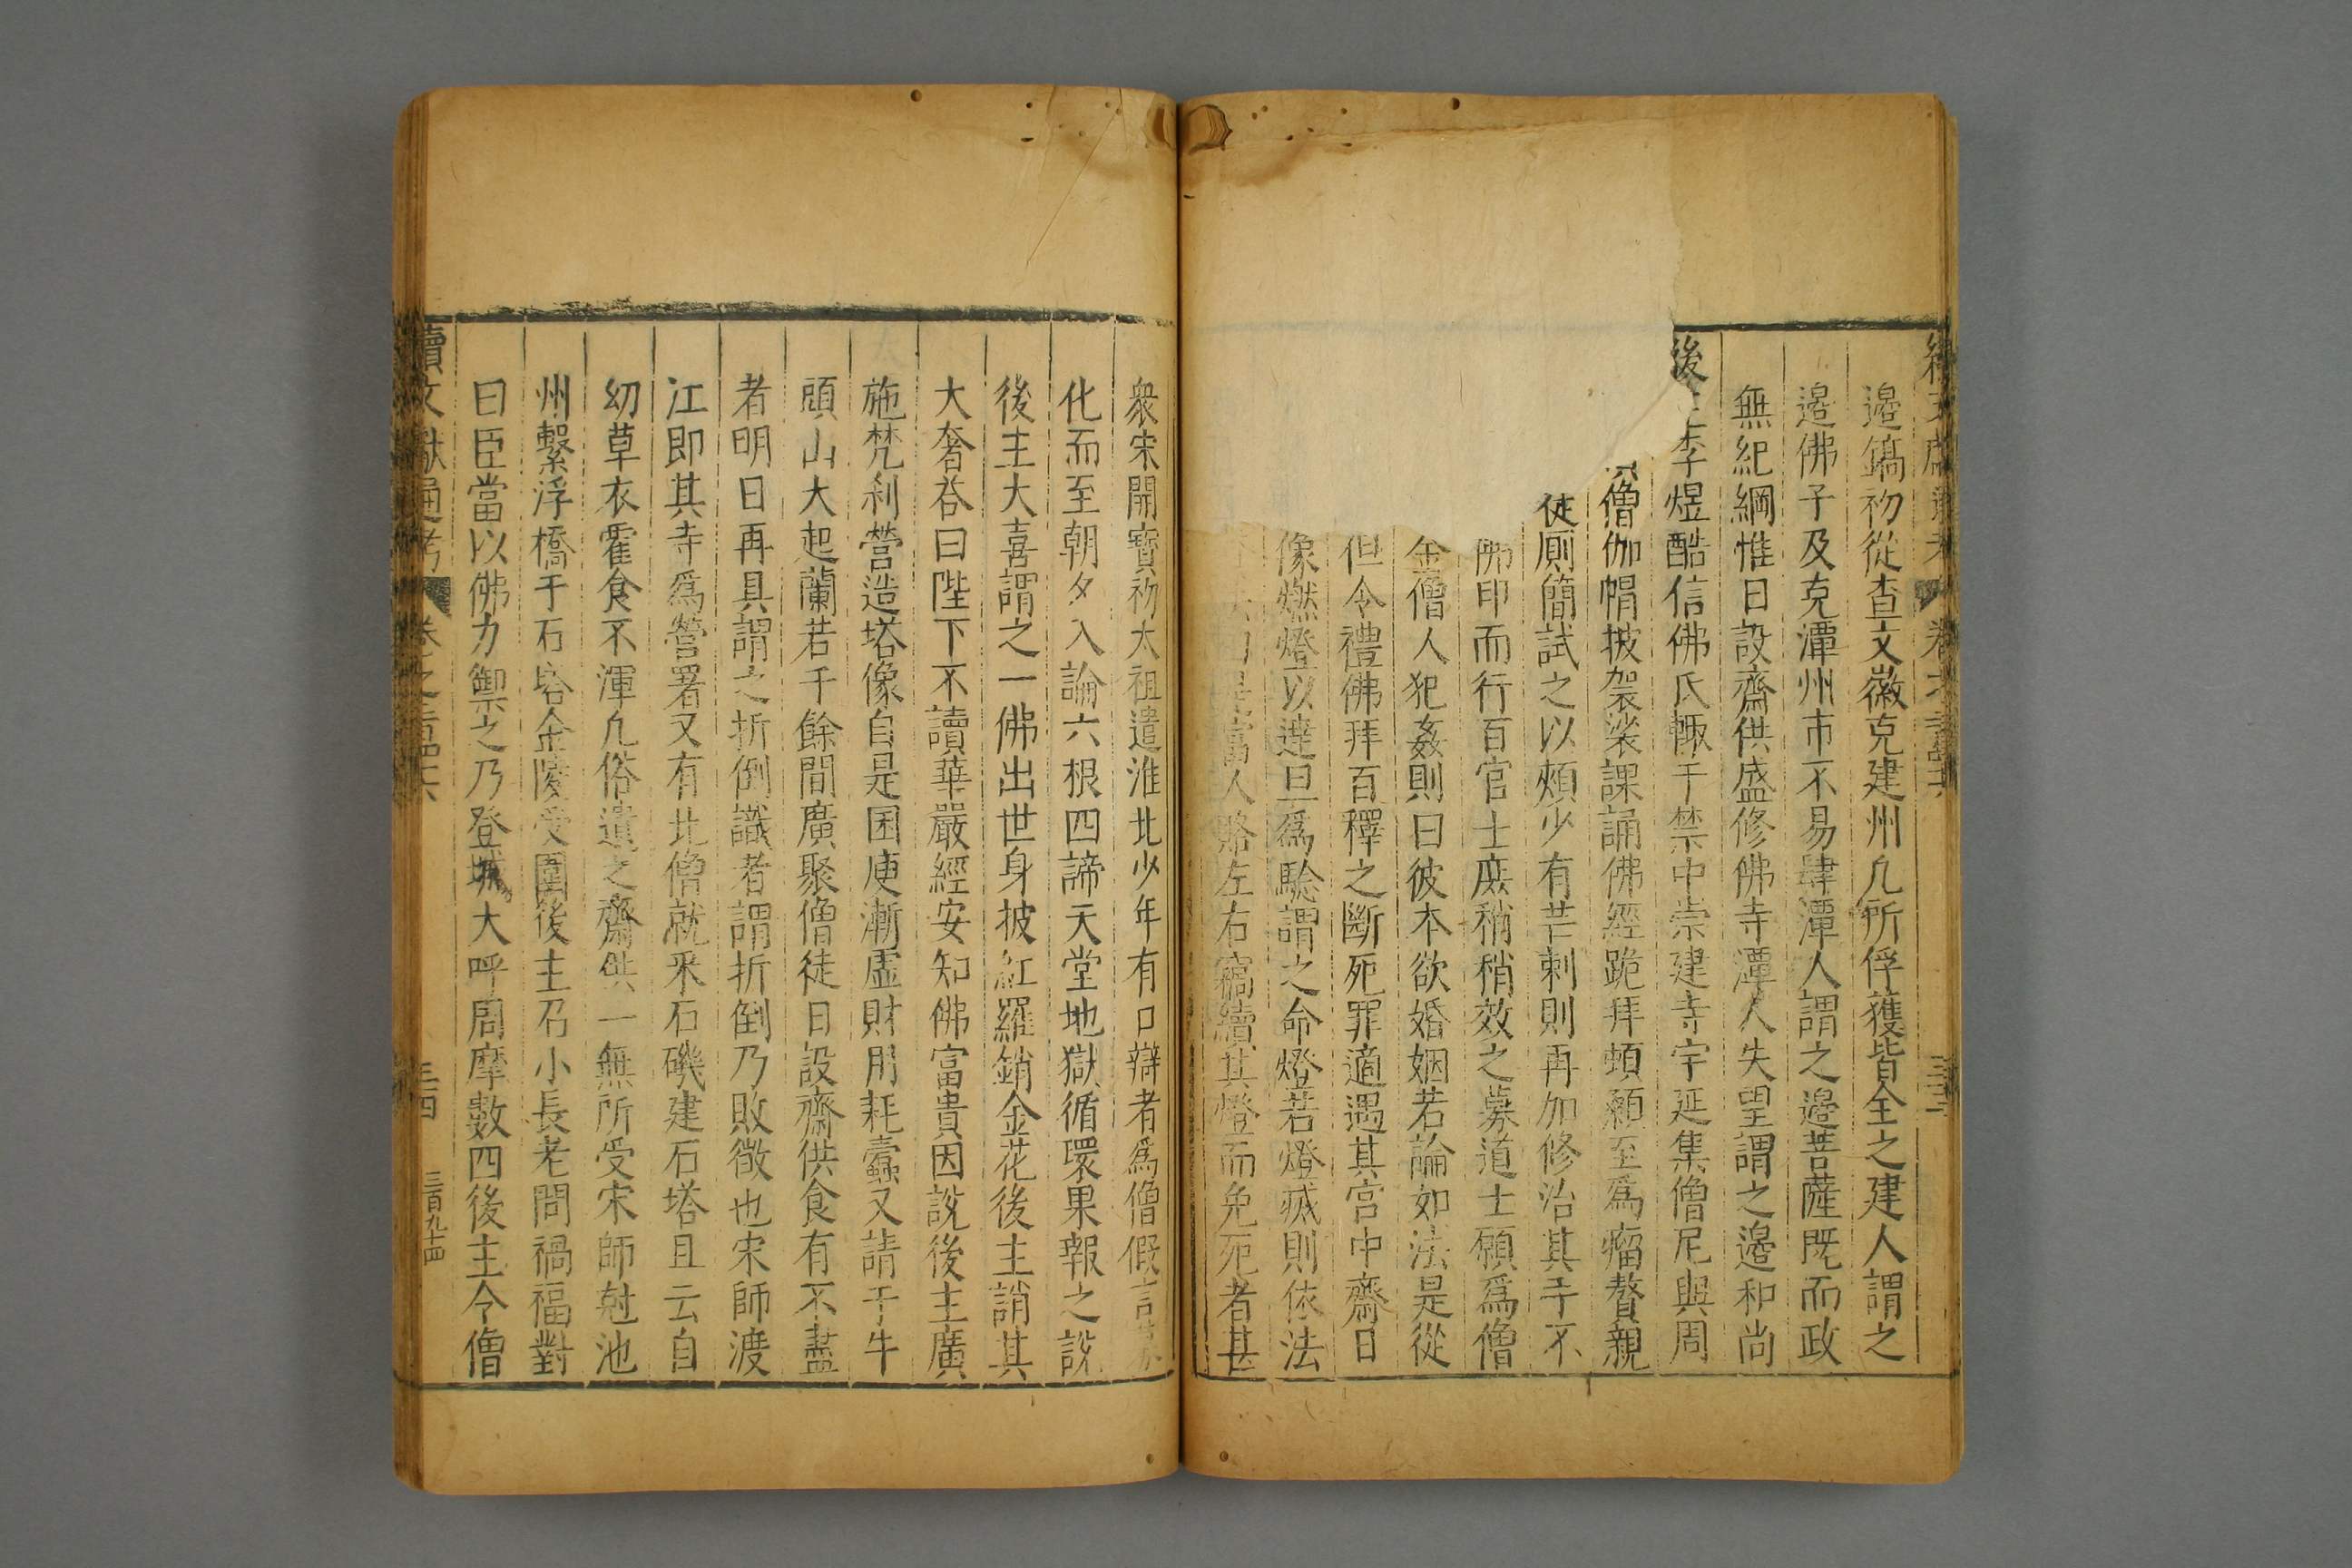 邉鎬初從查文徽克建州凢所俘獲皆全之建人謂之
邉佛子及克潭州市不易肆潭人謂之邉菩薩旣而政
無紀綱惟日設齋供盛修佛寺潭人失望謂之邉和尚
後主李煜酷信佛氏輙于禁中崇建寺宇延集僧尼與周
僧伽帽披袈裟課誦佛經跪拜頓顙至爲瘤贅親
徒厠簡試之以頰少有芒刺則再加修治其手不
佛印而行百官士庶稍稍效之募道士願爲僧
金僧人犯姦則曰彼本欲婚姻若論如法是從
但令禮佛拜百釋之斷死罪適遇其宫中齋日
像燃燈以達旦爲驗謂之命燈若燈㓕則依法
富人賂左右竊續其燈而免死者甚
衆宋開寶初太祖遣淮北少年有口辯者爲僧假言
化而至朝夕入論六根四諦天堂地獄循環果報之說
後主大喜謂之一佛出世身披紅羅銷金花後主誚其
大奢荅曰陛下不讀華嚴經安知佛富貴因說後主廣
施梵刹營造塔像自是囷庾漸虛財用耗蠹又請于牛
頭山大起蘭若千餘間廣聚僧徒日設齋供食有不盡
者明日再具謂之折倒識者謂折倒乃敗徵也宋師渡
江即其寺爲營署又有北僧就釆石磯建石塔且云自
幼草衣藿食不渾凢俗遺之齋供一無所受宋師尅池
州繫浮橋于石塔金陵受圍後主召小長老問禍福對
曰臣當以佛力禦之乃登城大呼周麾數四後主令僧
續文獻通考 卷之 三四 三百九十四